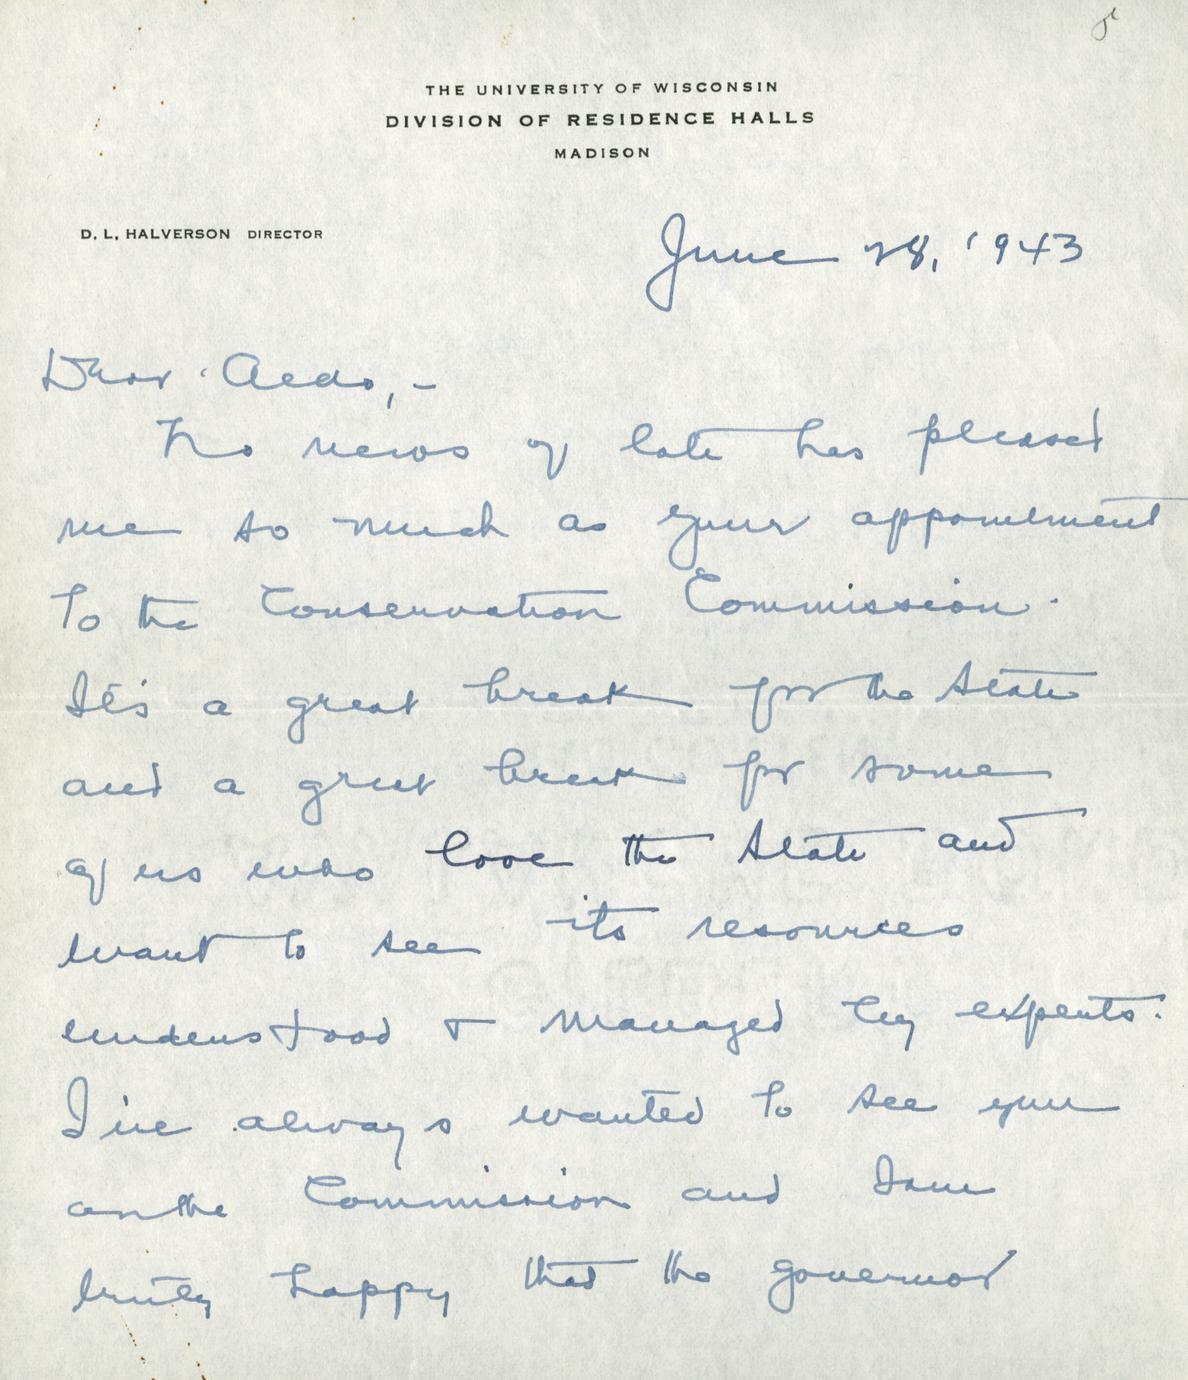 5
THE UNIVERSITY OF WISCONSIN
DIVISION OF RESIDENCE HALLS
MADISON
D. L. HALVERSON DIRECTOR
June 28, 1943
Dear Aldo, -
No news of late has pleased
me so much as your appointment
to the Conservation Commission.
It's a great break for the State
and a great break for some
of us who love the State and
want to see its resources
understood & managed by experts.
I've always wanted to see you
on the Commission and I am
truly happy that the governor